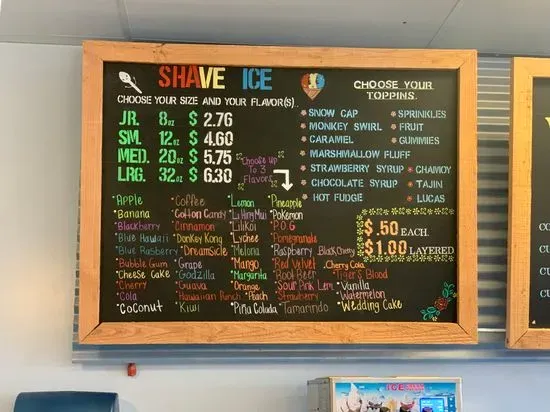 SHAVE ICE
CHOOSE YOUR SIZE AND YOUR FLAVOR(S)..
JR. 8oz $ 2.76
SM. 12oz $ 4.60
MED. 20oz $ 5.75
LRG. 32oz $ 6.30
Choose up
To 3
Flavors
CHOOSE YOUR
TOPPINS.
SNOW CAP
MONKEY SWIRL
CARAMEL
MARSHMALLOW FLUFF
STRAWBERRY SYRUP
CHOCOLATE SYRUP
HOT FUDGE
SPRINKLES
FRUIT
GUMMIES
CHAMOY
TAJIN
LUCAS
$.50 EACH.
$1.00 LAYERED
Apple
Banana
Blackberry
Blue Hawaii
Blue Rasberry
Bubble Gum
Cheese Cake
Cherry
Cola
Coconut
Coffee
Cotton Candy
Cinnamon
Donkey Kong
Dreamsicle
Grape
Godzilla
Guava
Hawaiian Punch
Kiwi
Lemon
Li Hing Mui
Lilikoi
Lychee
Melona
Mango
Margarita
Orange
Peach
Piña Colada
Pineapple
Pokemon
P.O.G
Pomegranate
Raspberry
Red Velvet
Root Beer
Sour Pink Lem
Strawberry
Tamarindo
Black Cherry
Cherry Cola
Tiger's Blood
Vanilla
Watermelon
Wedding Cake
ICE